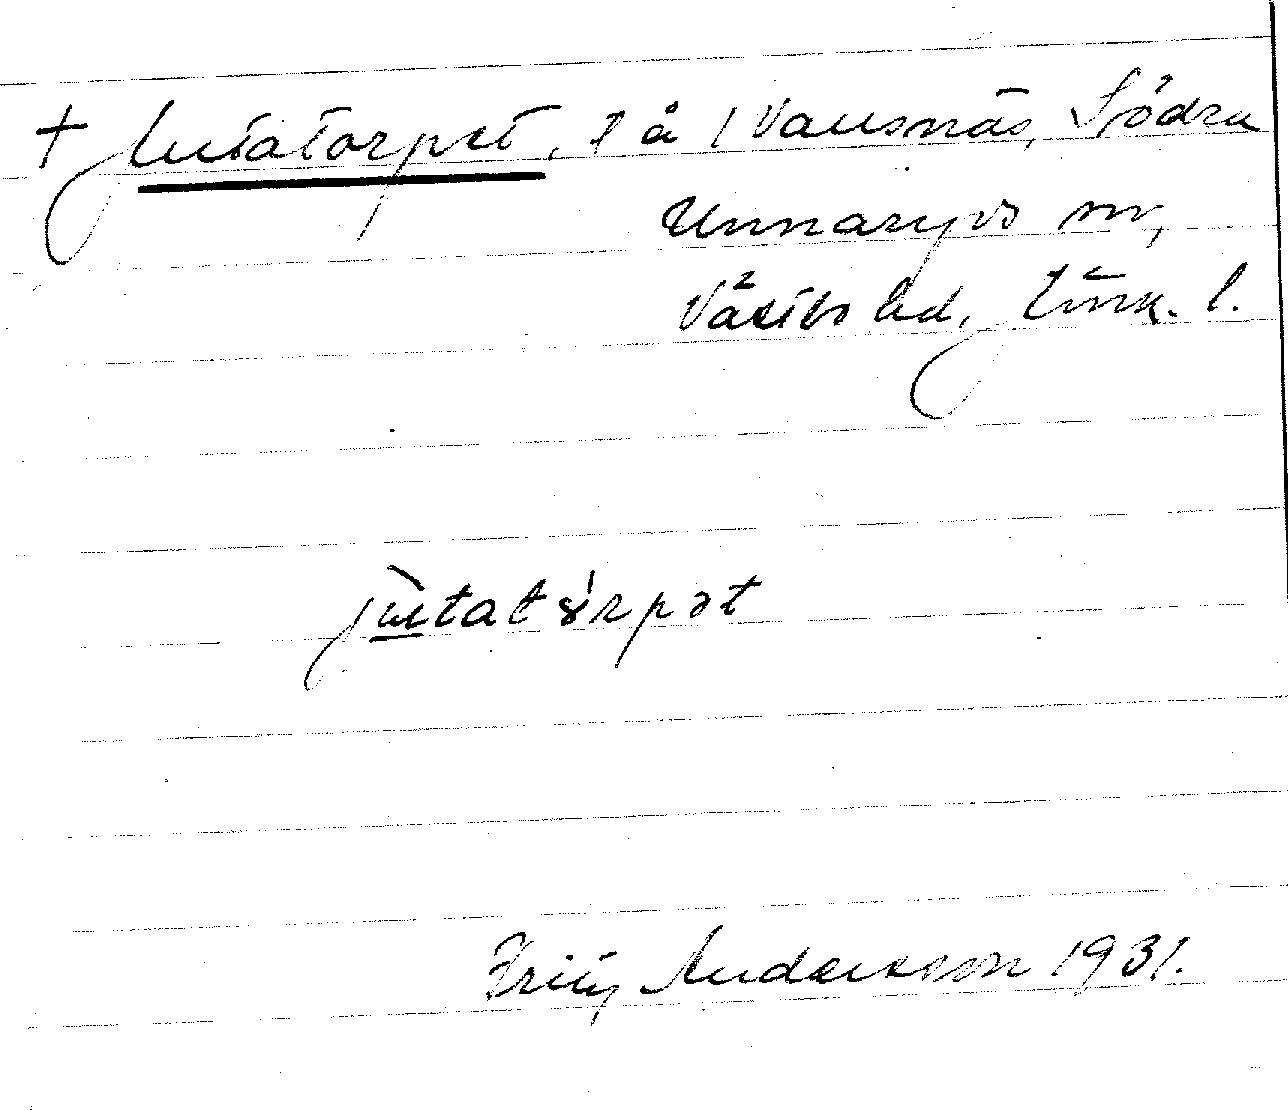 † Jutatorpet, l å 1 Vallsnäs, Södra
Unnaryds sn,
Västbo hd, Jönk. l.
jùtatórpət
Fritz Andersson 1931.